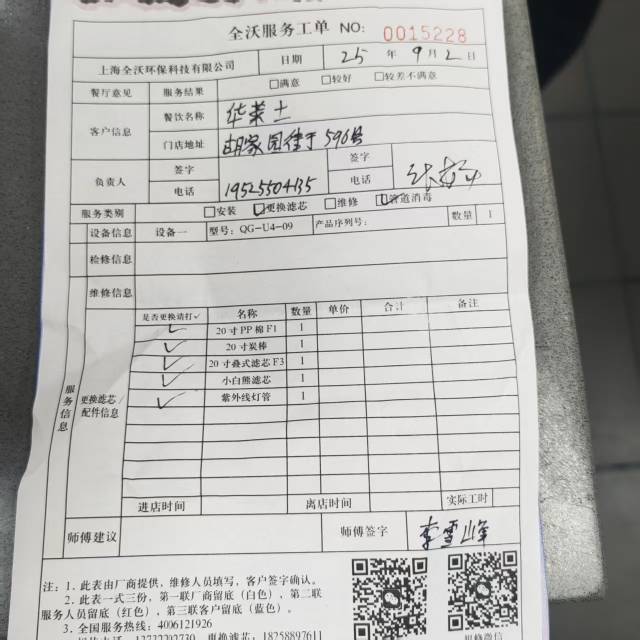 全沃服务工单 NO: 0015228
上海全沃环保科技有限公司 日期 25 年 9 月 2 日
餐厅意见 服务结果 □满意 □较好 □较差不满意
客户信息 餐饮名称 华莱士
门店地址 胡家园街于596号
负责人 签字 签字
电话 19525504135 电话
服务类别 □安装 ☑更换滤芯 □维修 ☑管道消毒
设备信息 设备一 型号: QG-U4-09 产品序列号: 数量 1
检修信息
维修信息
服务信息
更换滤芯/配件信息
是否更换请打✓ 名称 数量 单价 合计 备注
✓ 20寸PP棉F1 1
✓ 20寸炭棒 1
✓ 20寸叠式滤芯F3 1
✓ 小白熊滤芯 1
✓ 紫外线灯管 1
进店时间 离店时间 实际工时
师傅建议 师傅签字 李雪峰
注: 1、此表由厂商提供，维修人员填写，客户签字确认。
2、此表一式三份，第一联厂商留底（白色），第二联
服务人员留底（红色），第三联客户留底（蓝色）。
3、全国服务热线: 4006121926
更换滤芯: 18258897611